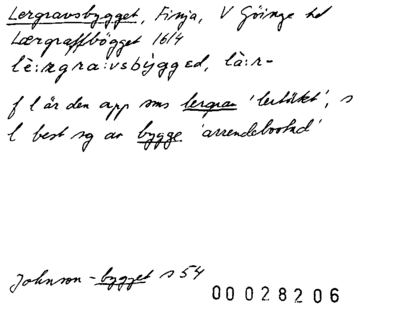 Lergravsbygget, Finja, V Göinge hd
Lærgraffbögget 1614
lè:rgra:vsbỳgged, là:r-
f l är den app sms lergrav 'lertäkt', s
l best sg av bygge 'arrendebostad'
Johnson -bygget s 54
00028206